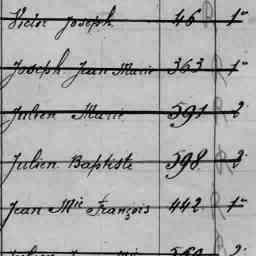 Victor Joseph 46 1º
Joseph Jean Marie 363 1º
Julien Marie 591 2
Julien Baptiste 598 2
Jean Mie François 442 1º